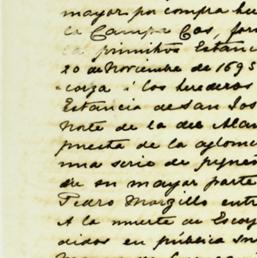 mayor por compra
la Campa Cos, for
primitiva Estanc
20 de Noviembre de 1695
á los herederos
Estancia de San Jos
Norte de la del Alam
puesta de la aglome
una serie de
en su mayor parte
Pedro Morzillo entr
A la muerte de Escoy
didos en pública su